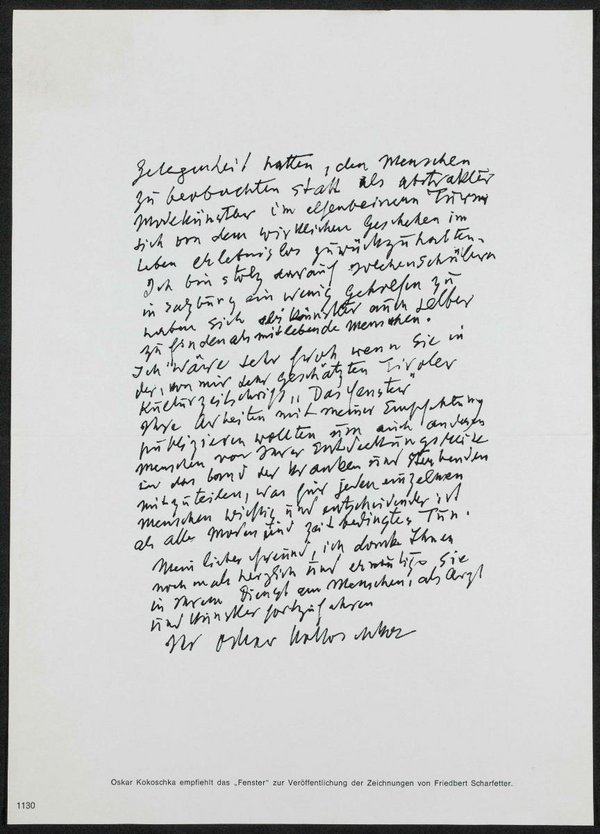 Gelegenheit hatten, den Menschen
zu beobachten statt als abstrakter
Modekünstler im elfenbeinernen Turm
sich von dem wirklichen Geschehen im
Leben erlebnislos zurückzuhalten.
Ich bin stolz darauf solchen Schülern
in Salzburg ein wenig geholfen zu
haben sich als Künstler auch selber
zu finden als mitlebende Menschen.
Ich wäre sehr froh wenn Sie in
der, von mir sehr geschätzten Tiroler
Kulturzeitschrift „Das Fenster"
Ihre Arbeiten mit meiner Empfehlung
publizieren wollten um auch anderen
Menschen von Ihrer Entdeckungsreise
in das Land der Kranken und Sterbenden
mitzuteilen, was für jeden einzelnen
Menschen wichtig und entscheidender ist
als alle Moden und zeitbedingtes Tun.
Mein lieber Freund, ich danke Ihnen
nochmals herzlich und ermutige Sie
in Ihrem Dienst am Menschen, als Arzt
und Künstler fortzufahren
Ihr Oskar Kokoschka
Oskar Kokoschka empfiehlt das „Fenster" zur Veröffentlichung der Zeichnungen von Friedbert Scharfetter.
1130